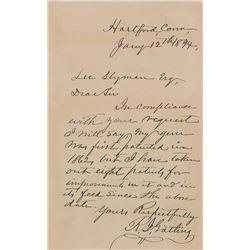 Hartford, Conn,
Jany 12th 1894.
Lee Slyman Esq,
Dear Sir
In compliance
with your request
I will say, My gun
was first patented in
1862, but I have taken
out eight patents for
improvements in it and in
its feed since the above
date.
Yours Respectfully
R. J. Gatling